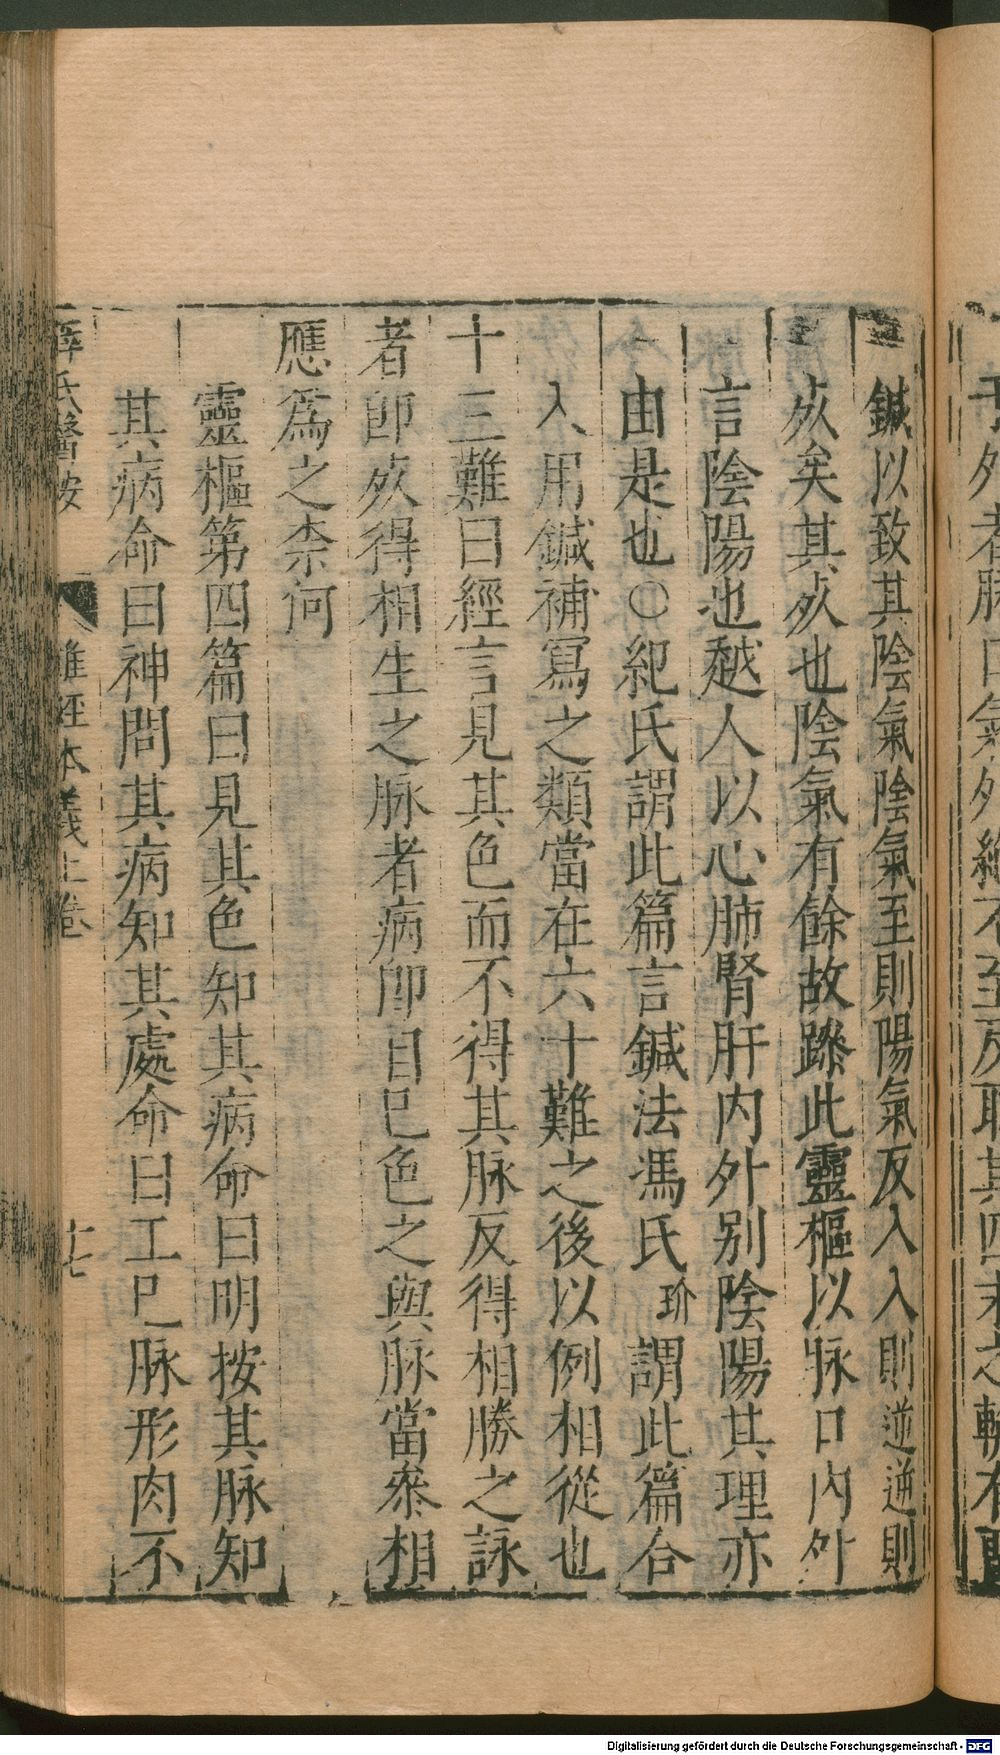 鍼以致其陰氣陰氣至則陽氣反入入則逆逆則
死矣其死也陰氣有餘故躁此靈樞以脉口內外
言陰陽也越人以心肺腎肝內外別陰陽其理亦
由是也○紀氏謂此篇言鍼法馮氏玠謂此篇合
入用鍼補寫之類當在六十難之後以例相從也
十三難曰經言見其色而不得其脉反得相勝之詠
者卽死得相生之脉者病卽自已色之與脉當參相
應爲之柰何
靈樞第四篇曰見其色知其病命曰明按其脉知
其病命曰神問其病知其處命曰工色脉形肉不
薛氏醫按 難經本義上卷 十七
Digitalisierung gefördert durch die Deutsche Forschungsgemeinschaft - DFG